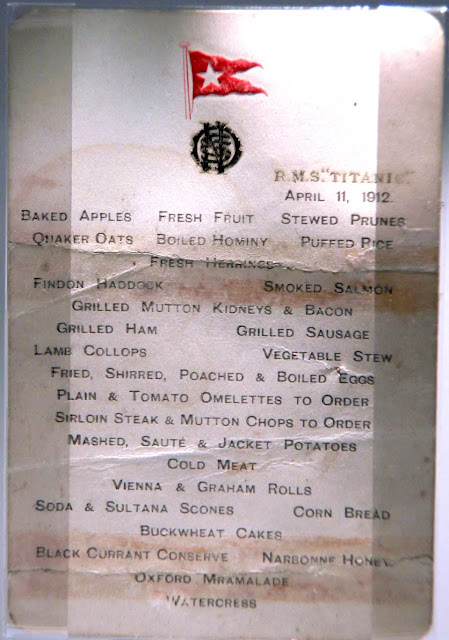 R.M.S. "TITANIC."
APRIL 11, 1912.
BAKED APPLES FRESH FRUIT STEWED PRUNES
QUAKER OATS BOILED HOMINY PUFFED RICE
FRESH HERRINGS
FINDON HADDOCK SMOKED SALMON
GRILLED MUTTON KIDNEYS & BACON
GRILLED HAM GRILLED SAUSAGE
LAMB COLLOPS VEGETABLE STEW
FRIED, SHIRRED, POACHED & BOILED EGGS
PLAIN & TOMATO OMELETTES TO ORDER
SIRLOIN STEAK & MUTTON CHOPS TO ORDER
MASHED, SAUTÉ & JACKET POTATOES
COLD MEAT
VIENNA & GRAHAM ROLLS
SODA & SULTANA SCONES CORN BREAD
BUCKWHEAT CAKES
BLACK CURRANT CONSERVE NARBONNE HONEY
OXFORD MRAMALADE
WATERCRESS